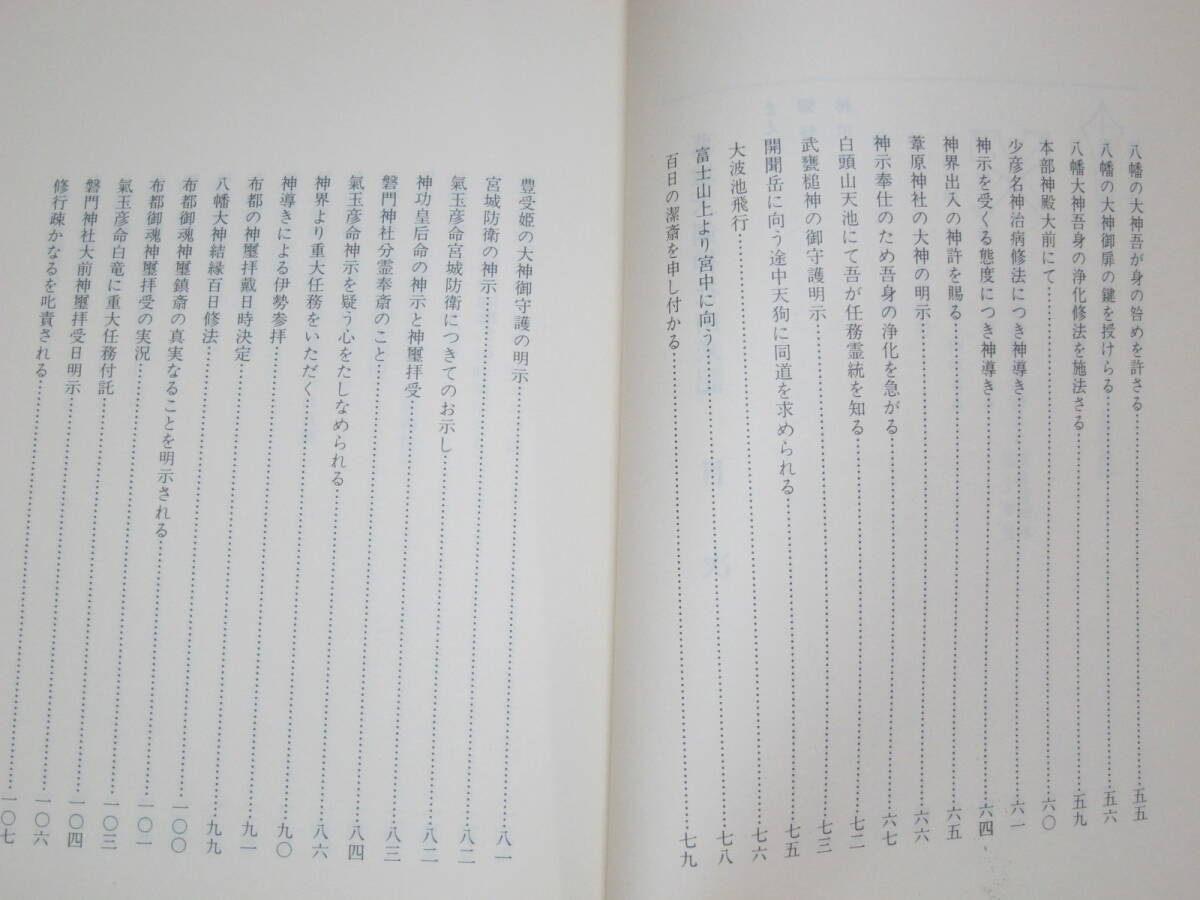 八幡の大神吾が身の咎めを許さる……五五
八幡の大神御扉の鍵を授けらる……五六
八幡大神吾身の浄化修法を施法さる……五九
本部神殿大前にて……六〇
少彦名神治病修法につき神導き……六一
神示を受くる態度につき神導き……六四
神界出入の神許を賜る……六五
葦原神社の大神の明示……六六
神示奉仕のため吾身の浄化を急がる……六七
白頭山天池にて吾が任務霊統を知る……七二
武甕槌神の御守護明示……七三
開聞岳に向う途中天狗に同道を求められる……七五
大波池飛行……七六
富士山上より宮中に向う……七八
百日の潔斎を申し付かる……七九
豊受姫の大神御守護の明示……八一
宮城防衛の神示……八二
氣玉彦命宮城防衛につきてのお示し……八二
神功皇后命の神示と神璽拝受……八三
磐門神社分霊奉斎のこと……八四
氣玉彦命神示を疑う心をたしなめられる……八六
神界より重大任務をいただく……九〇
神導きによる伊勢参拝……九一
布都の神璽拝戴日時決定……九九
八幡大神結縁百日修法……一〇〇
布都御魂神璽鎮斎の真実なることを明示される……一〇一
布都御魂神璽拝受の実況……一〇三
氣玉彦命白竜に重大任務付託……一〇四
磐門神社大前神璽拝受日明示……一〇六
修行疎かなるを叱責される……一〇七